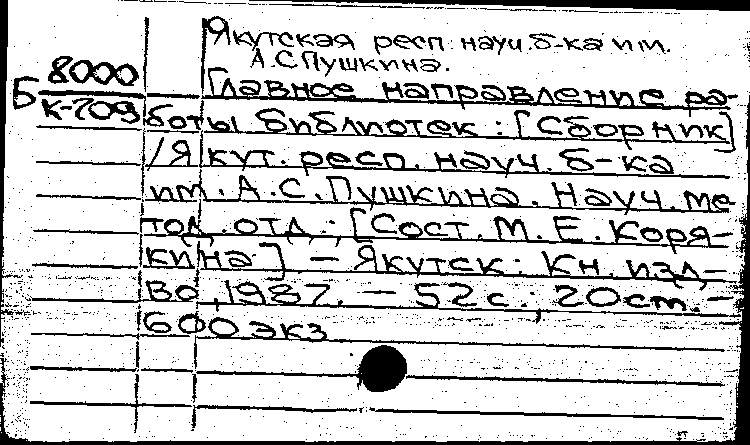 Якутская респ. науч. б-ка им.
А.С. Пушкина.
Б 8000
К-709
Главное направление ра-
боты библиотек : [Сборник]
/ Якут. респ. науч. б-ка
им. А.С. Пушкина. Науч. ме
тод. отд.; [Сост. М.Е. Коря-
кина] – Якутск: Кн. изд-
во, 1987. – 52 с.; 20 см. –
600 экз